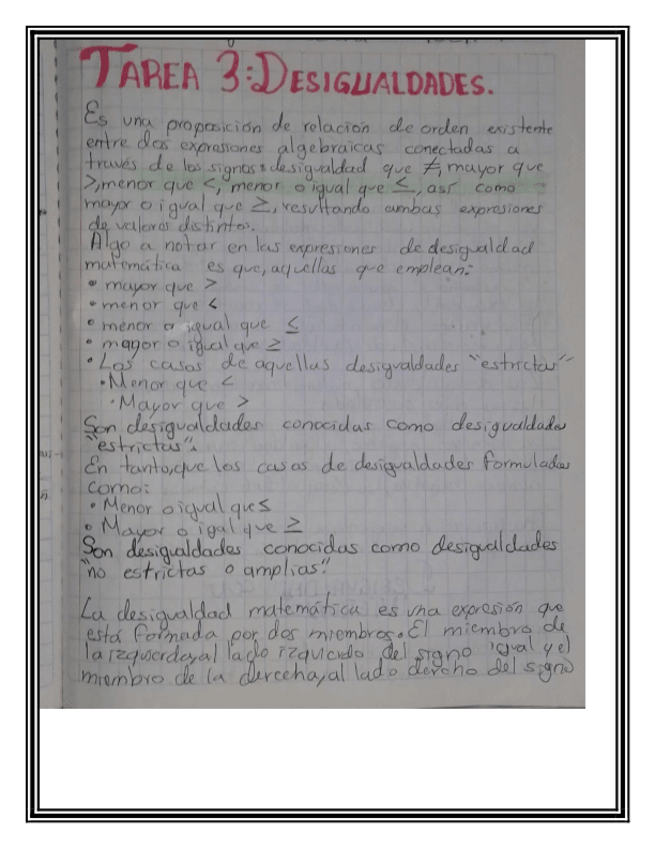 TAREA 3: DESIGUALDADES.
Es una proposición de relación de orden existente
entre dos expresiones algebraicas conectadas a
través de los signos: desigualdad que ≠, mayor que
>, menor que <, menor o igual que ≤, así como
mayor o igual que ≥, resultando ambas expresiones
de valores distintos.
Algo a notar en las expresiones de desigualdad
matemática es que, aquellas que emplean:
• mayor que >
• menor que <
• menor o igual que ≤
• mayor o igual que ≥
• Los casos de aquellas desigualdades "estrictas"
• Menor que <
• Mayor que >
Son desigualdades conocidas como desigualdades
"estrictas".
En tanto, que los casos de desigualdades formuladas
como:
• Menor o igual que ≤
• Mayor o igal que ≥
Son desigualdades conocidas como desigualdades
"no estrictas o amplias."
La desigualdad matemática es una expresión que
está formada por dos miembros. El miembro de
la izquierda, al lado izquierdo del signo igual y el
miembro de la derecha, al lado derecho del signo